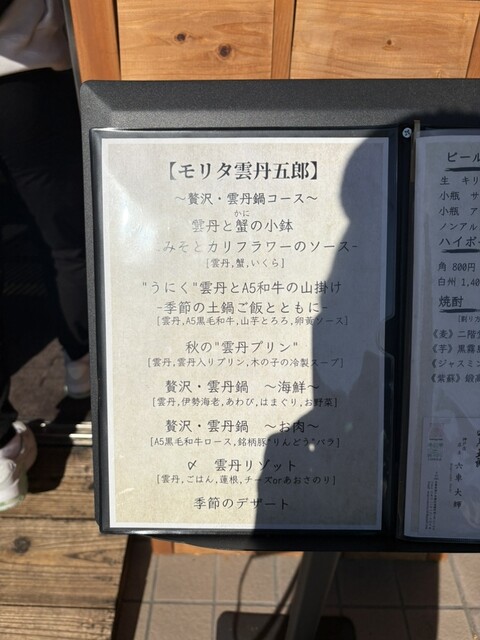 【モリタ雲丹五郎】
～贅沢・雲丹鍋コース～
かに
雲丹と蟹の小鉢
みそとカリフラワーのソース-
[雲丹,蟹,いくら]
"うにく"雲丹とA5和牛の山掛け
-季節の土鍋ご飯とともに-
[雲丹,A5黒毛和牛,山芋とろろ,卵黄ソース]
秋の"雲丹プリン"
[雲丹,雲丹入りプリン,木の子の冷製スープ]
贅沢・雲丹鍋 ～海鮮～
[雲丹,伊勢海老,あわび,はまぐり,お野菜]
贅沢・雲丹鍋 ～お肉～
[A5黒毛和牛ロース,銘柄豚"りんどう"バラ]
〆 雲丹リゾット
[雲丹,ごはん,蓮根,チーズorあおさのり]
季節のデザート
ビール
生 キリ
小瓶 サ
小瓶 ア
ノンアル
ハイボ
角 800円
白州 1,40
焼酎
《麦》二階
《芋》黒霧
《ジャスミン
《紫蘇》鍛高
六車大輝